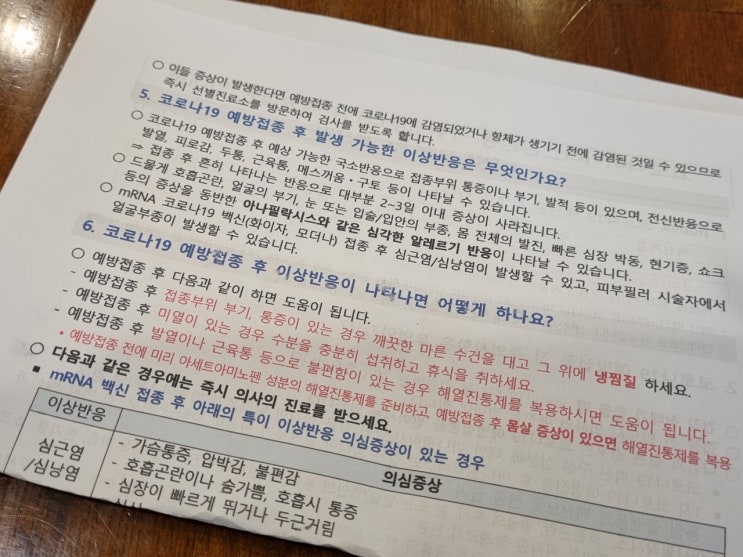 ○ 이들 증상이 발생한다면 예방접종 전에 코로나19에 감염되었거나 항체가 생기기 전에 감염된 것일 수 있으므로
즉시 선별진료소를 방문하여 검사를 받도록 합니다.
5. 코로나19 예방접종 후 발생 가능한 이상반응은 무엇인가요?
○ 코로나19 예방접종 후 예상 가능한 국소반응으로 접종부위 통증이나 부기, 발적 등이 있으며, 전신반응으로
발열, 피로감, 두통, 근육통, 메스꺼움·구토 등이 나타날 수 있습니다.
⇒ 접종 후 흔히 나타나는 반응으로 대부분 2~3일 이내 증상이 사라집니다.
○ 드물게 호흡곤란, 얼굴의 부기, 눈 또는 입술/입안의 부종, 몸 전체의 발진, 빠른 심장 박동, 현기증, 쇼크
등의 증상을 동반한 아나필락시스와 같은 심각한 알레르기 반응이 나타날 수 있습니다.
○ mRNA 코로나19 백신(화이자, 모더나) 접종 후 심근염/심낭염이 발생할 수 있고, 피부필러 시술자에서
얼굴부종이 발생할 수 있습니다.
6. 코로나19 예방접종 후 이상반응이 나타나면 어떻게 하나요?
○ 예방접종 후 다음과 같이 하면 도움이 됩니다.
- 예방접종 후 접종부위 부기, 통증이 있는 경우 깨끗한 마른 수건을 대고 그 위에 냉찜질 하세요.
- 예방접종 후 미열이 있는 경우 수분을 충분히 섭취하고 휴식을 취하세요.
- 예방접종 후 발열이나 근육통 등으로 불편함이 있는 경우 해열진통제를 복용하시면 도움이 됩니다.
* 예방접종 전에 미리 아세트아미노펜 성분의 해열진통제를 준비하고, 예방접종 후 몸살 증상이 있으면 해열진통제를 복용
○ 다음과 같은 경우에는 즉시 의사의 진료를 받으세요.
▪ mRNA 백신 접종 후 아래의 특이 이상반응 의심증상이 있는 경우
이상반응 의심증상
심근염
/심낭염
- 가슴통증, 압박감, 불편감
- 호흡곤란이나 숨가쁨, 호흡시 통증
- 심장이 빠르게 뛰거나 두근거림